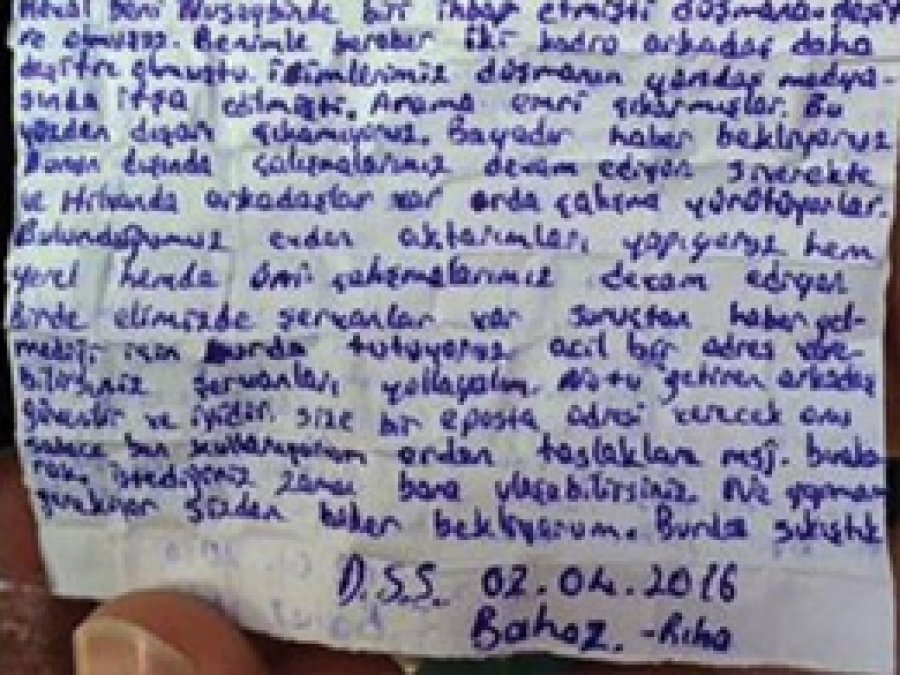 Heval beni Nusaybinde bir ihbar etmişti düşmana. deşif
re olmuşuz. Benimle beraber iki kadro arkadaş daha
deşifre olmuştu. isimlerimiz düşmanın yandaş medya-
sında ifşa edilmişti. Arama emri çıkarmışlar. Bu
yüzden dışarı çıkamıyoruz. Bayadır haber bekliyoruz
Bunun dışında çalışmalarımız devam ediyor siverekte
ve Hilvanda arkadaşlar var orda çalışma yürütüyorlar.
Bulunduğumuz evden aktarımları yapıyoruz hem
yerel hemde çalışmalarımız devam ediyor
Birde elimizde şervanlar var suruçtan haber gel-
mediği için burda tutuyoruz acil bir adres vere-
bilirseniz şervanları yollayalım. Notu getiren arkadaş
güvenilir ve iyidir. size bir eposta adresi verecek onu
sadece ben kullanıyorum ordan taslaklara msj. bıraka
rak. istediğiniz zaman bana ulaşabilirsiniz. Ne yapmam
gerekiyor sizden haber bekliyorum. Burda sıkıştık
D.S.S. 02.04.2016
Bahoz. -Riha